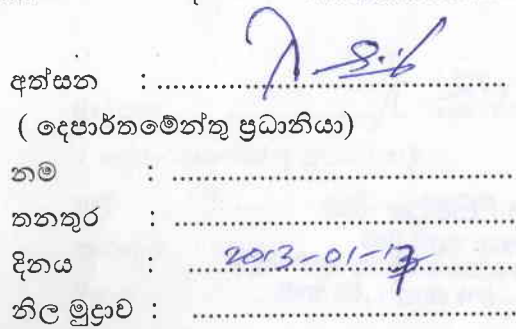 අත්සන : ..............................................
( දෙපාර්තමේන්තු ප්‍රධානියා)
නම : ..............................................
තනතුර : ..............................................
දිනය : 2013-01-17
නිල මුද්‍රාව : ..............................................